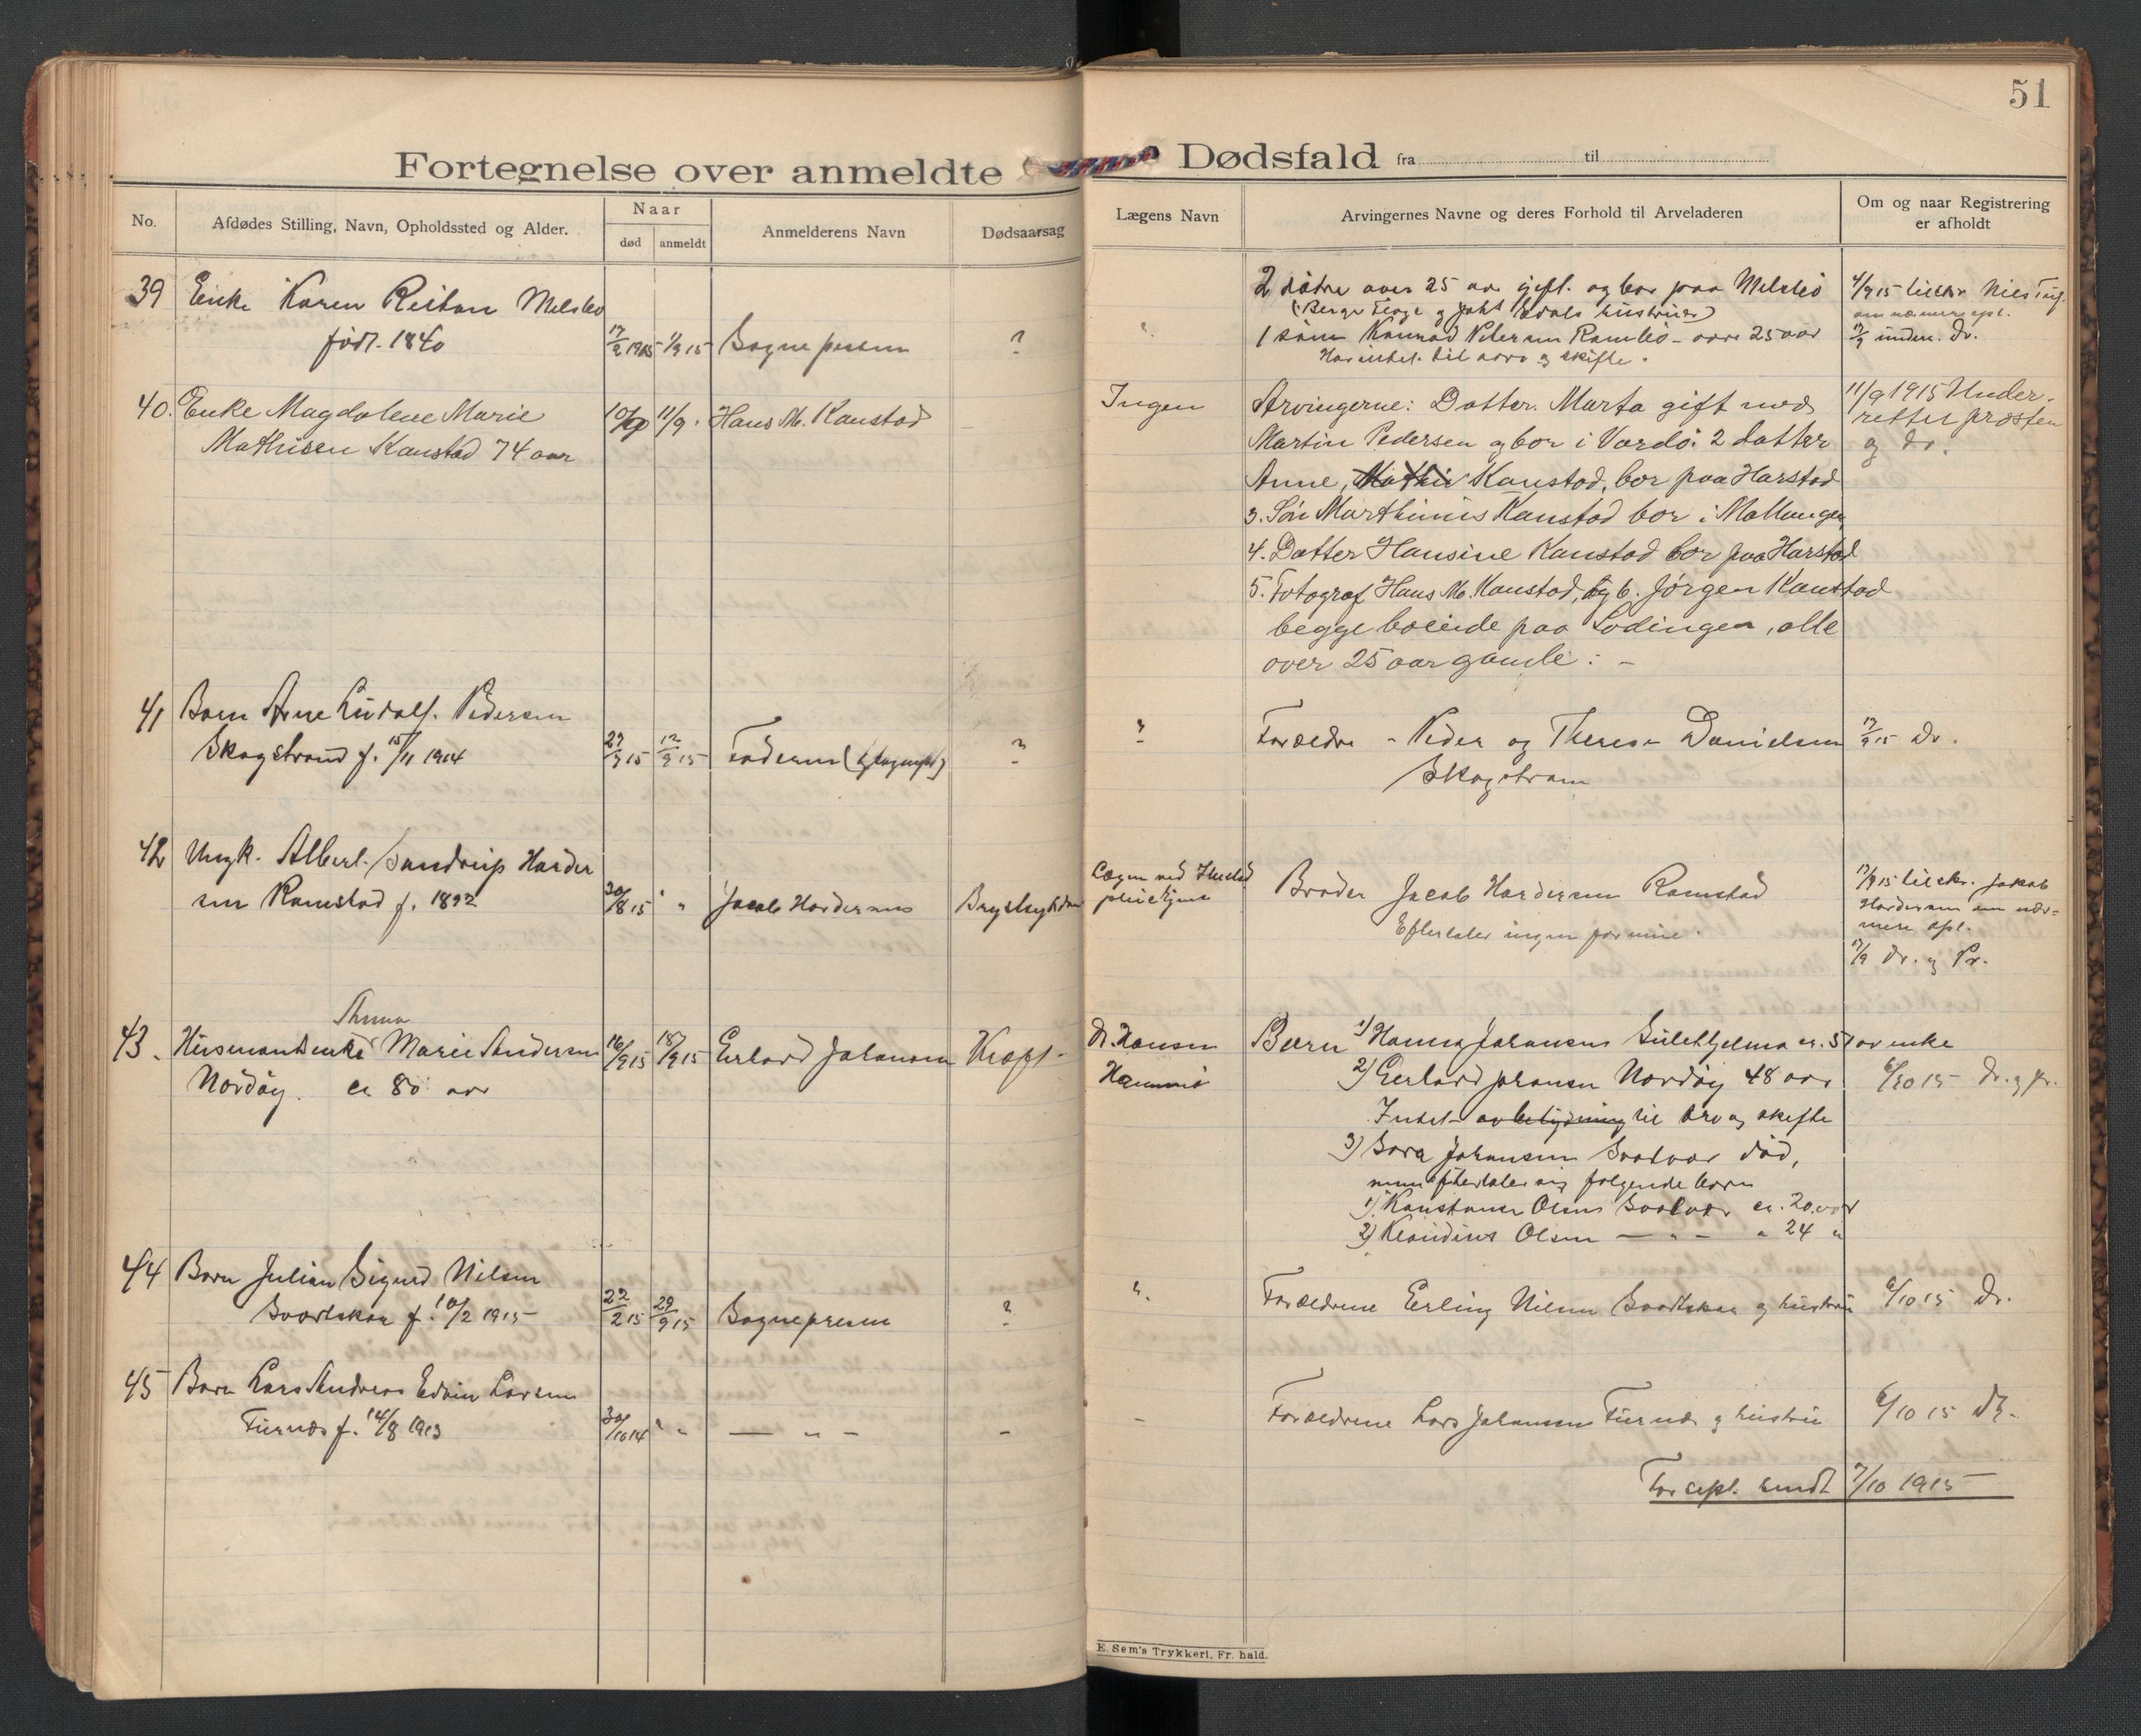 51
Fortegnelse over anmeldte Dødsfald fra til
No.
Afdødes Stilling, Navn, Opholdssted og Alder.
Naar
død
anmeldt
Anmelderens Navn
Dødsaarsag
Lægens Navn
Arvingernes Navne og deres Forhold til Arveladeren
Om og naar Registrering
er afholdt
39 Enke Karen Reitan Melsbo
født. 1840
Sognepresten
?
2 døtre over 25 aar gift. og bor paa Melsbö
1 søn Konrad over 25 aar
Har intet til arv og skifte.
4/9 15 tilskr. Nils
om nærmere opl.
40. Enke Magdalene Marie
Mathisen Kanstad 74 aar
10/9 11/9. Hans M. Kanstad
Ingen
Arvingerne: Datter. Marta gift med
Martin Pedersen og bor i Vardö. 2 datter
Anne, Kanstad, bor paa Harstad
3. Søn Marthinus Kanstad bor i Mallangen
4. Datter Hansine Kanstad bor paa Harstad
5. Fotograf Hans M. Kanstad, og 6. Jørgen Kanstad
begge boende paa Lødingen, alle
over 25 aar gamle: -
11/9 1915 Under-
rettet præsten
og dr.
41 Barn Arne Ludolf. Pedersen
Skogstrand f. 15/11 1914
12/9 15 Faderen
?
Forældre - Peder og Therese Danielsen
17/9 15 Dr.
42 Ungk. Albert Sandrup Harder
sen Ramstad f. 1892
30/8 15 " " Jacob Hardersen
Brystsykdom
Lægen ved
pleiehjem
Broder Jacob Hardersen Ramstad
Efterlater ingen formue.
17/9 15 tilskr. Jakob
Hardersen om nær-
mere opl.
17/9 Dr. og Pr.
43. Husmandsenke Marie Andersen
Nordöy. ca 80 aar
16/9 15 18/9 15 Erlard Johansen
Kræft
Dr. Hansen
Hammö
Børn 1) Hanna Johansen ca. 51 aar enke
2) Eerlard Johansen Nordöy 48 aar
Intet av betydning til arv og skifte
3) Sara Johansen Svolvær død,
men efterlater sig følgende børn
1) Konstanse Olsen Svolvær ca. 20 aar
2) Klaudius Olsen — " — " 24 "
6/10 15 Dr. og pr.
44 Barn Julian Sigurd Nilsen
Svartskar f. 10/2 1915
22/2 15 29/9 15 Sognepresten
?
Forældrene Erling Nilsen Svartskar og hustru
6/10 15 Dr.
45 Barn Lars Andreas Edvin Larsen
Furnes f. 14/8 1913
30/10 14 " " — " —
-
Forældrene Lars Johansen Furnes og hustru
6/10 15 Dr.
For sept. sendt 7/10 1915
E. Sem's Trykkeri, Fr.hald.